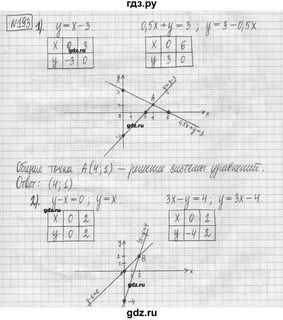 гдз.ру
№193 1). y=x-3    0,5x+y=3 ; y=3-0,5x
x 0 3    x 0 6
y -3 0    y 3 0
y=x-3
A
0,5x+y=3
Общая точка A(4;1) – решение системы уравнений.
Ответ: (4;1).
2). y-x=0 ; y=x    3x-y=4 ; y=3x-4
x 0 2    x 0 2
y 0 2    y -4 2
B
y-x=0
-4
gdz.ru